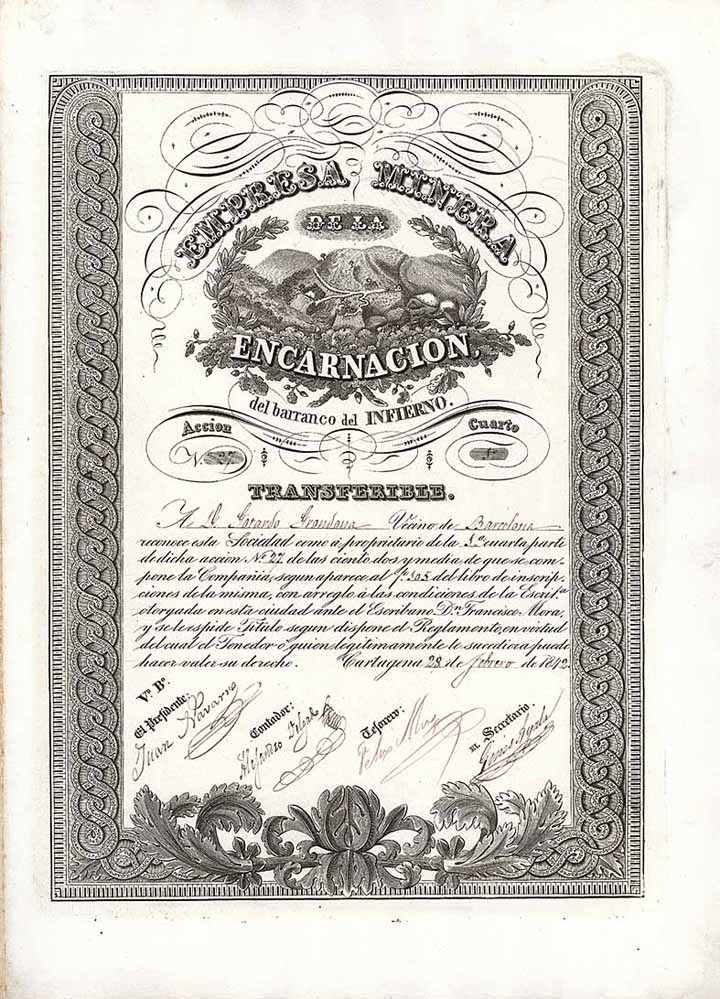 EMPRESA MINERA
DE LA
ENCARNACION,
del barranco del INFIERNO.
Accion Cuarto
N.º 27 1.º
TRANSFERIBLE.
A D. Gerardo Vecino de Barcelona
reconoce esta Sociedad como á proprietario de la 1.ª cuarta parte
de dicha accion N.º 27 de las ciento dos y media de que se com-
pone la Compañia, segun aparece al f.º 305 del libro de inscrip-
ciones de la misma, con arreglo à las condiciones de la Escrit.ª
otorgada en esta ciudad ante el Escribano D.n Francisco Mora,
y se le espide Titulo segun dispone el Reglamento, en virtud
del cual el Tenedor ó quien legitimamente le sucediera puede
hacer valer su derecho. Cartagena 28 de febrero de 1842
V.º B.º
El Presidente: Contador: Tesorero: El Secretario
Juan Navarro Ginés